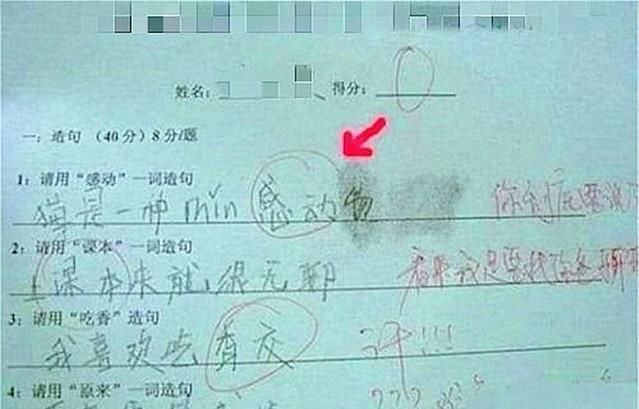 姓名: 得分: 0
一: 造句 (40分) 8分/题
1: 请用"感动"一词造句
猫是一种min感动物
2: 请用"课本"一词造句
上课本来就很无聊 看来我是要找你爸聊聊
3: 请用"吃香"造句
我喜欢吃香交 汗!!!
4: 请用"原来"一词造句 ???